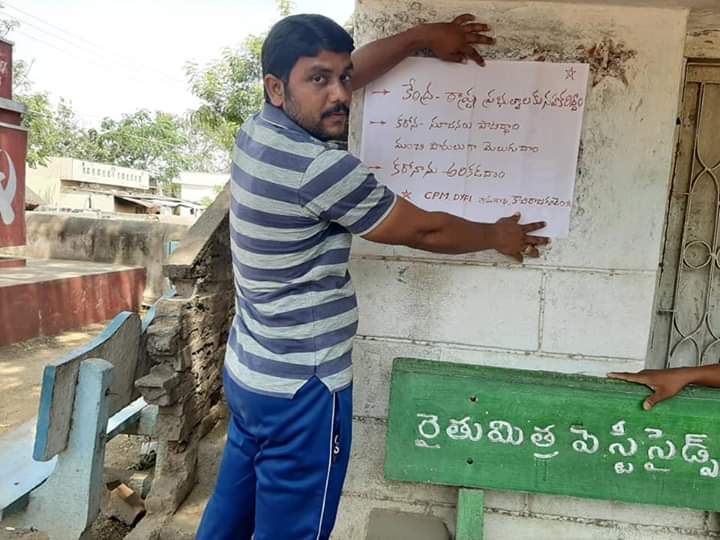 → కేంద్ర - రాష్ట్ర ప్రభుత్వాలకు సహకరిద్దాం
→ కరోన - సూచనలు పాటిద్దాం
మంచి పౌరులుగా మెలుగుదాం
→ కరోనాను అరికడదాం
☆ CPM, DYFI
రైతుమిత్ర పెస్టిసైడ్స్